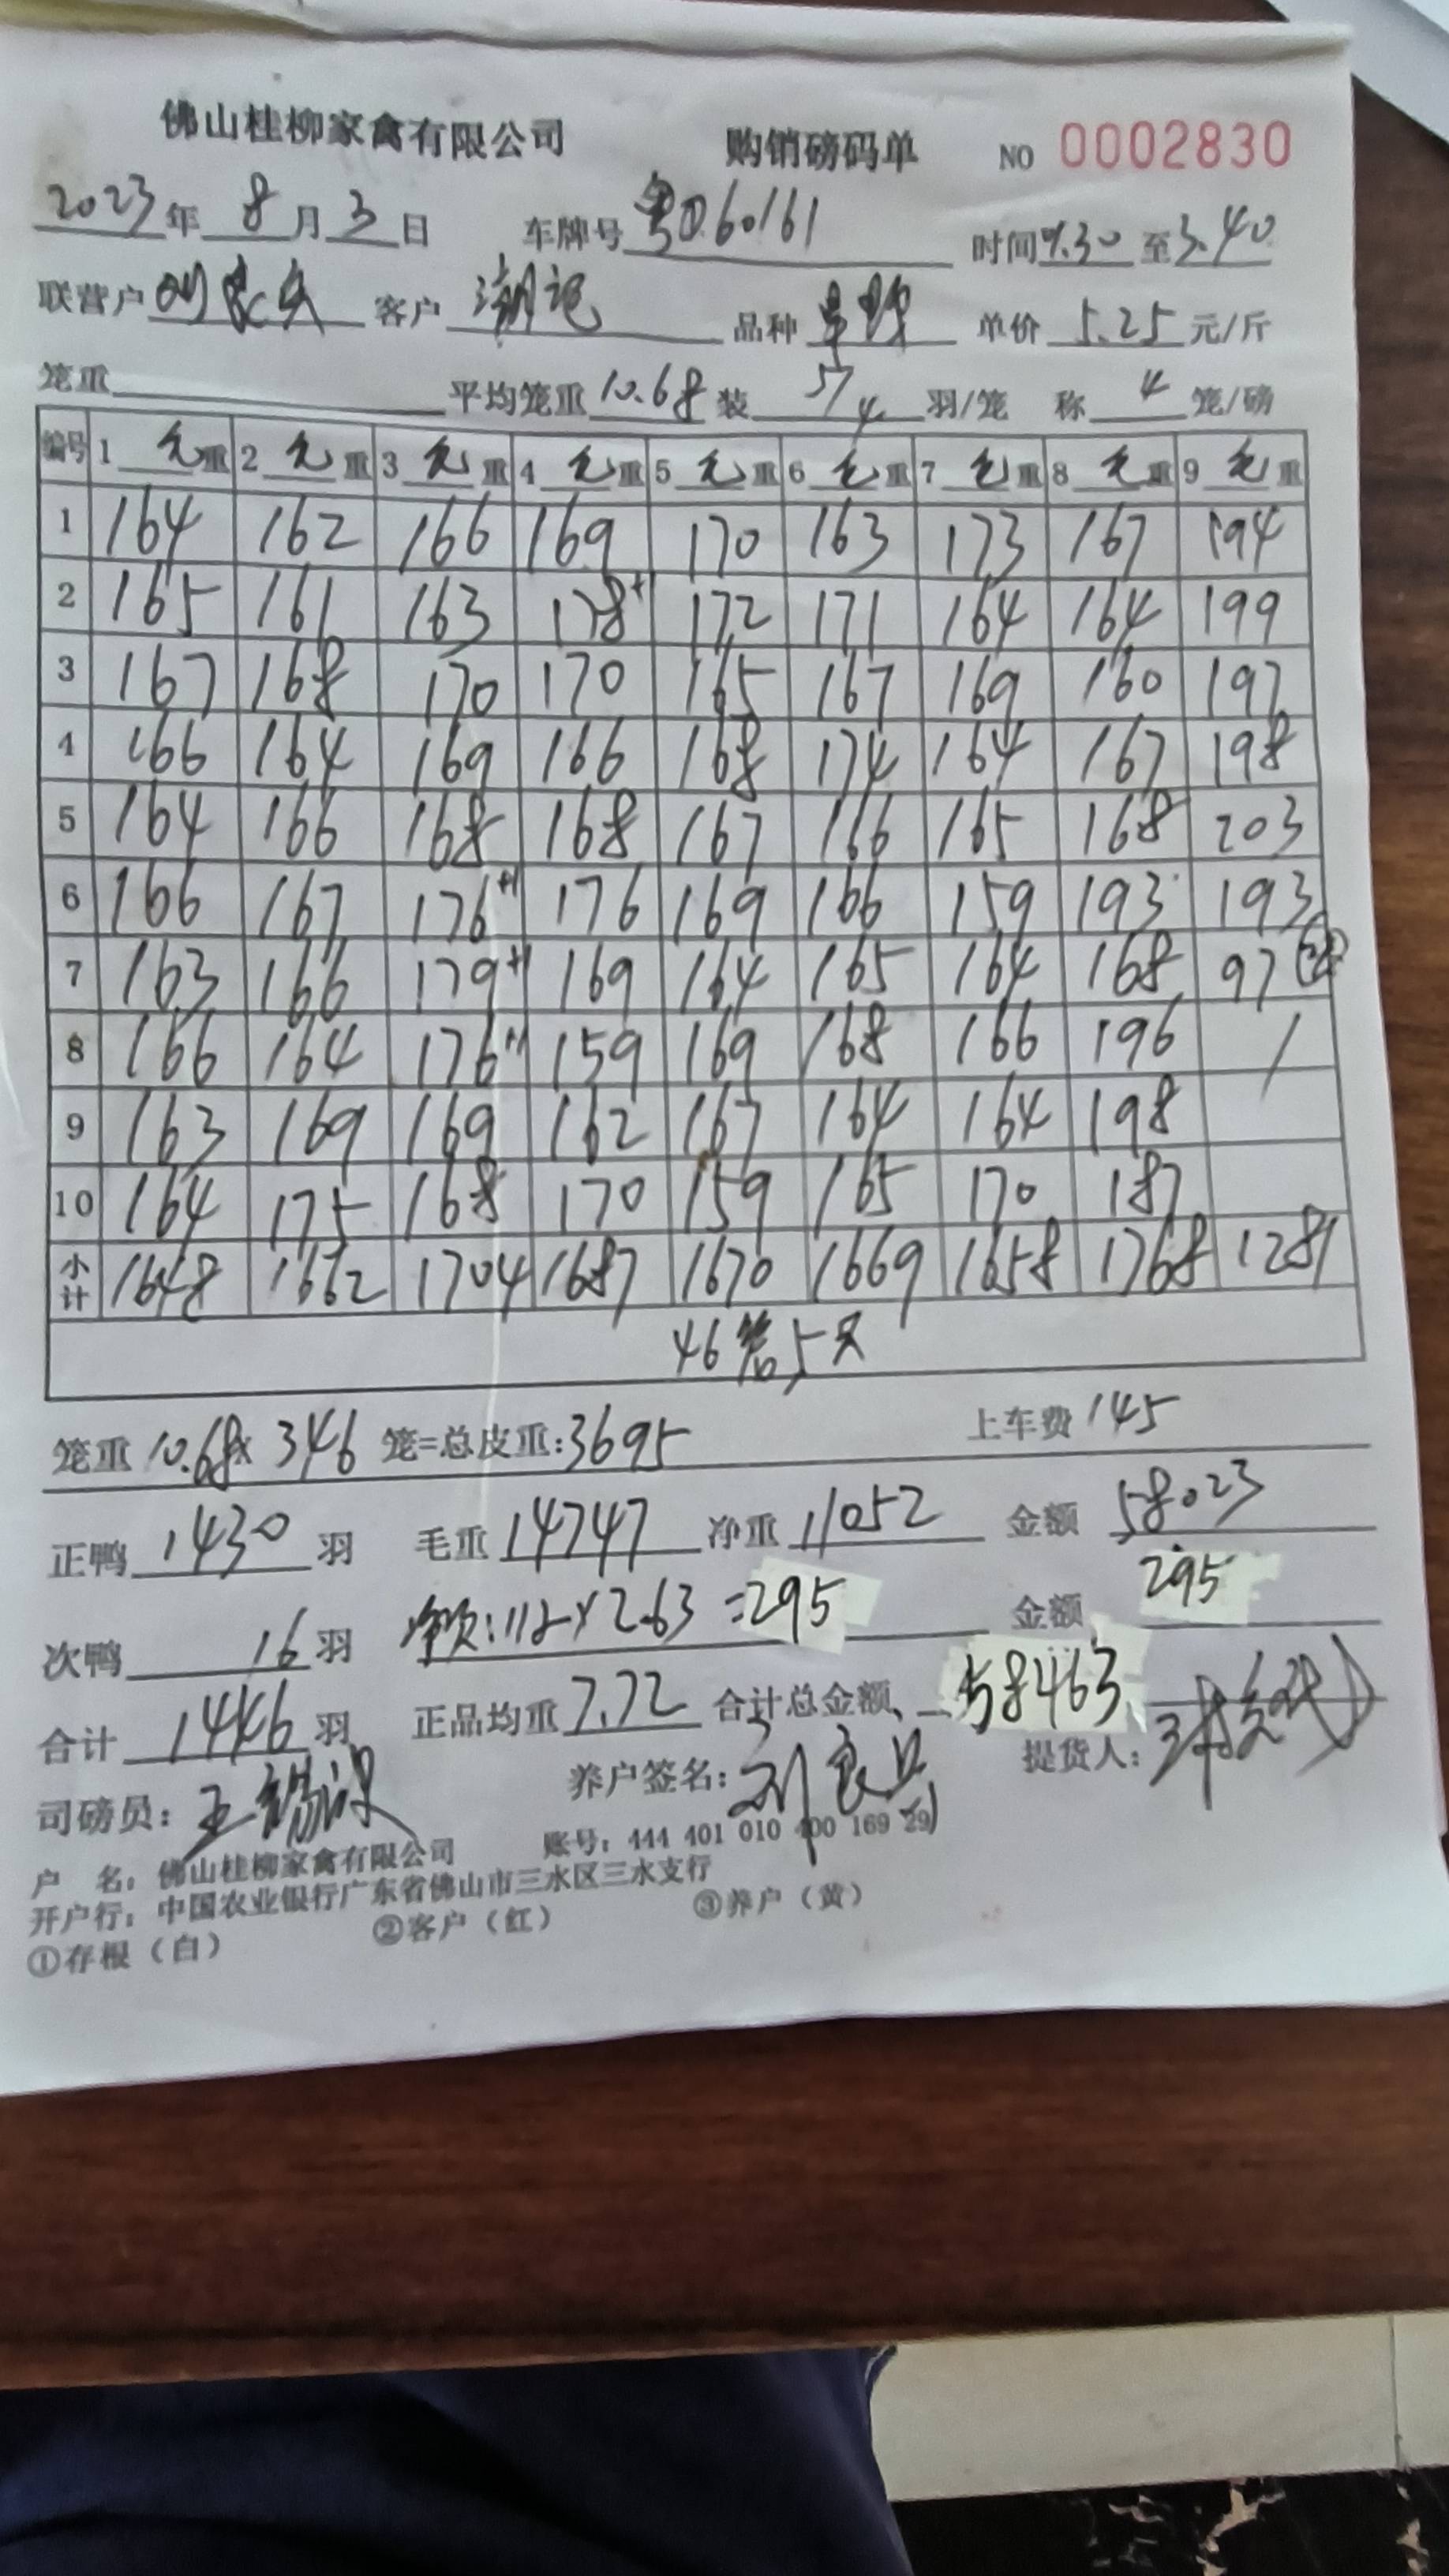 佛山桂柳家禽有限公司 购销磅码单 NO 0002830
2023年 8月 3日 车牌号 粤060161 时间 至3.40
联营户 客户 潮记 品种 单价 5.25 元/斤
笼重 平均笼重 10.68 装 羽/笼 称 4 笼/磅
编号 1 毛重 2 毛重 3 毛重 4 毛重 5 毛重 6 毛重 7 毛重 8 毛重 9 毛重
1 164 162 166 169 170 163 173 167 194
2 165 161 163 178+ 172 171 164 164 199
3 167 168 170 170 165 167 169 160 197
4 166 164 169 166 168 174 164 167 198
5 164 166 168 168 167 166 165 168 203
6 166 167 176+1 176 169 166 159 193 193
7 163 166 179+1 169 164 165 164 168 97
8 166 164 176 159 169 168 166 196 /
9 163 169 169 162 167 164 164 198
10 164 175 168 170 159 165 170 187
小计 1648 1662 1704 1687 1670 1669 1658 1768 1281
46笼5只
笼重 10.68x 346 笼=总皮重:3695 上车费 145
正鸭 1430 羽 毛重 14747 净重 11052 金额 58023
次鸭 16 羽 112x2.63=295 金额 295
合计 1446 羽 正品均重 7.72 合计总金额 58463
司磅员: 养户签名: 刘良 提货人:
户 名: 佛山桂柳家禽有限公司 账号: 444 401 010 400 169 29
开户行: 中国农业银行广东省佛山市三水区三水支行
①存根（白） ②客户（红） ③养户（黄）